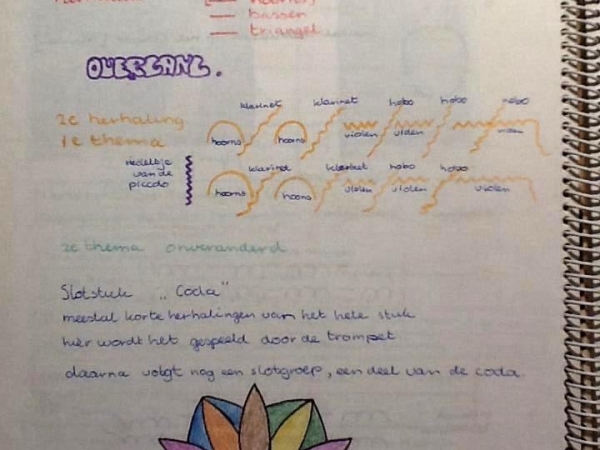 hoorns
— bassen
— triangel
OVERGANG.
klarinet klarinet hobo hobo hobo
2e herhaling
1e thema
hoorns hoorns violen violen violen
riedeltje
van de
piccolo
klarinet klarinet hobo hobo
hoorns hoorns violen violen violen
2e thema onveranderd
Slotstuk „Coda”
meestal korte herhalingen van het hele stuk
hier wordt het gespeeld door de trompet
daarna volgt nog een slotgroep, een deel van de coda.